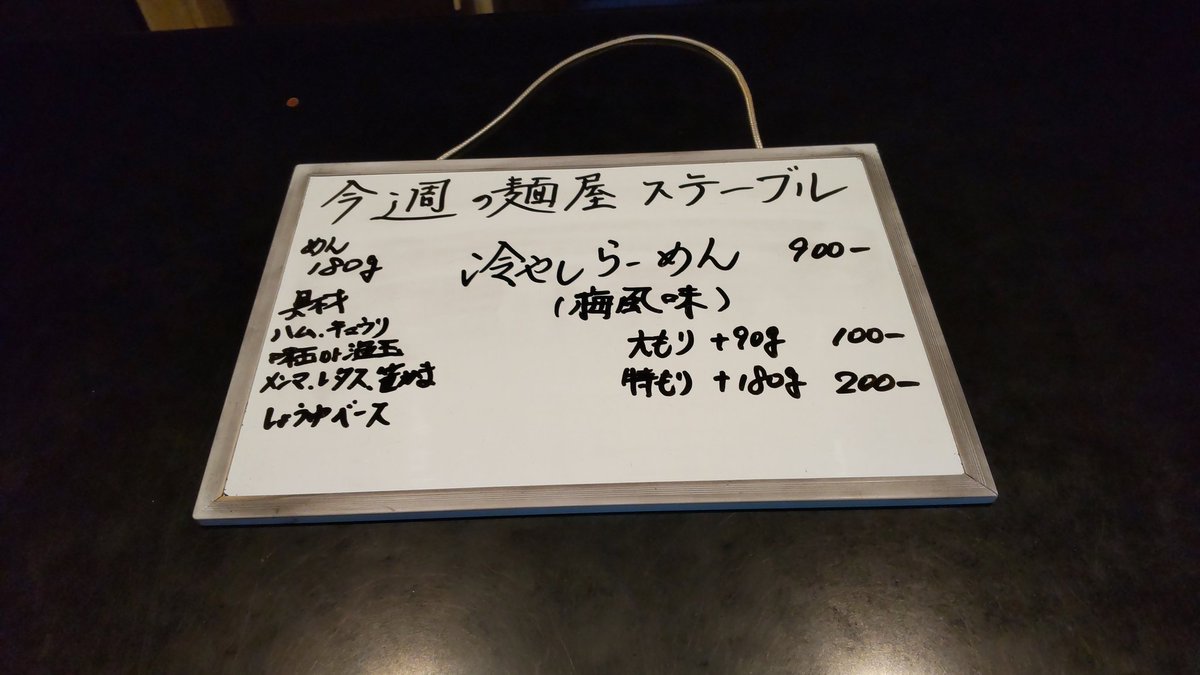 今週の麺屋 ステーブル
めん
180g
具材
ハム、キュウリ
味玉or温玉
メンマ、レタス、
しょうゆベース
冷やしらーめん 900-
(梅風味)
大もり +90g 100-
特もり +180g 200-